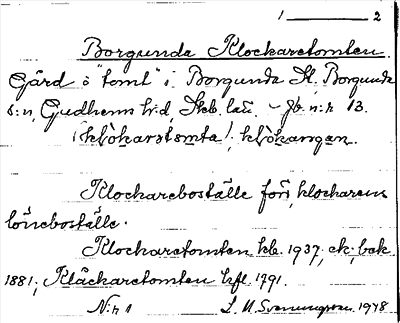 1 — 2
Borgunda Klockaretomten
Gård o "tomt" i Borgunda St, Borgunda
s:n, Gudhems h:d, Skb. län. Jb. n:r 13.
klòkarstsmta
Klockareboställe förr, klockarens
löneboställe.
Klockaretomten kb. 1937, ek, bak
1881; Klåckaretomten hfl. 1791.
N:r 1 L. M. Svenungsson 1948